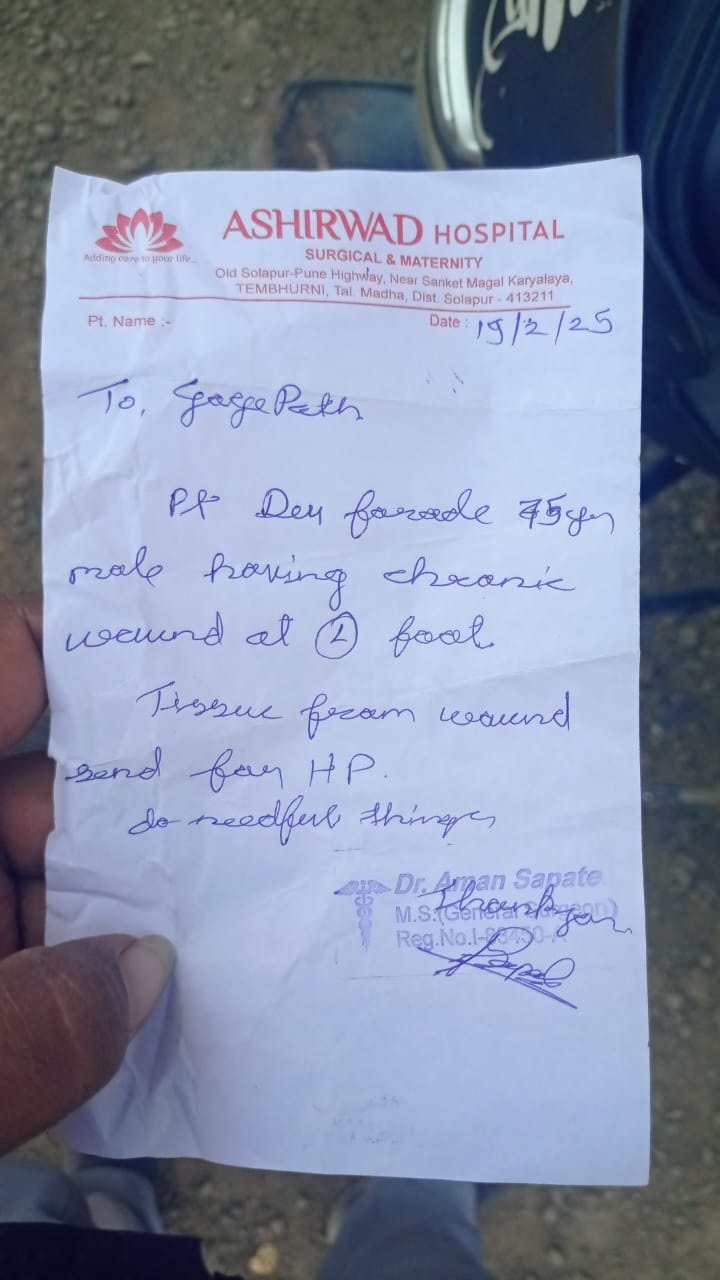 Adding care to your life...
ASHIRWAD HOSPITAL
SURGICAL & MATERNITY
Old Solapur-Pune Highway, Near Sanket Magal Karyalaya,
TEMBHURNI, Tal. Madha, Dist. Solapur - 413211
Pt. Name :-
Date : 19/2/25
To,
Pt 75 yr
male having chronic
wound at L foot
Tissue from wound
send for HP.
do needful things
Dr. Aman Sapate
M.S.(General Surgeon)
Thank you